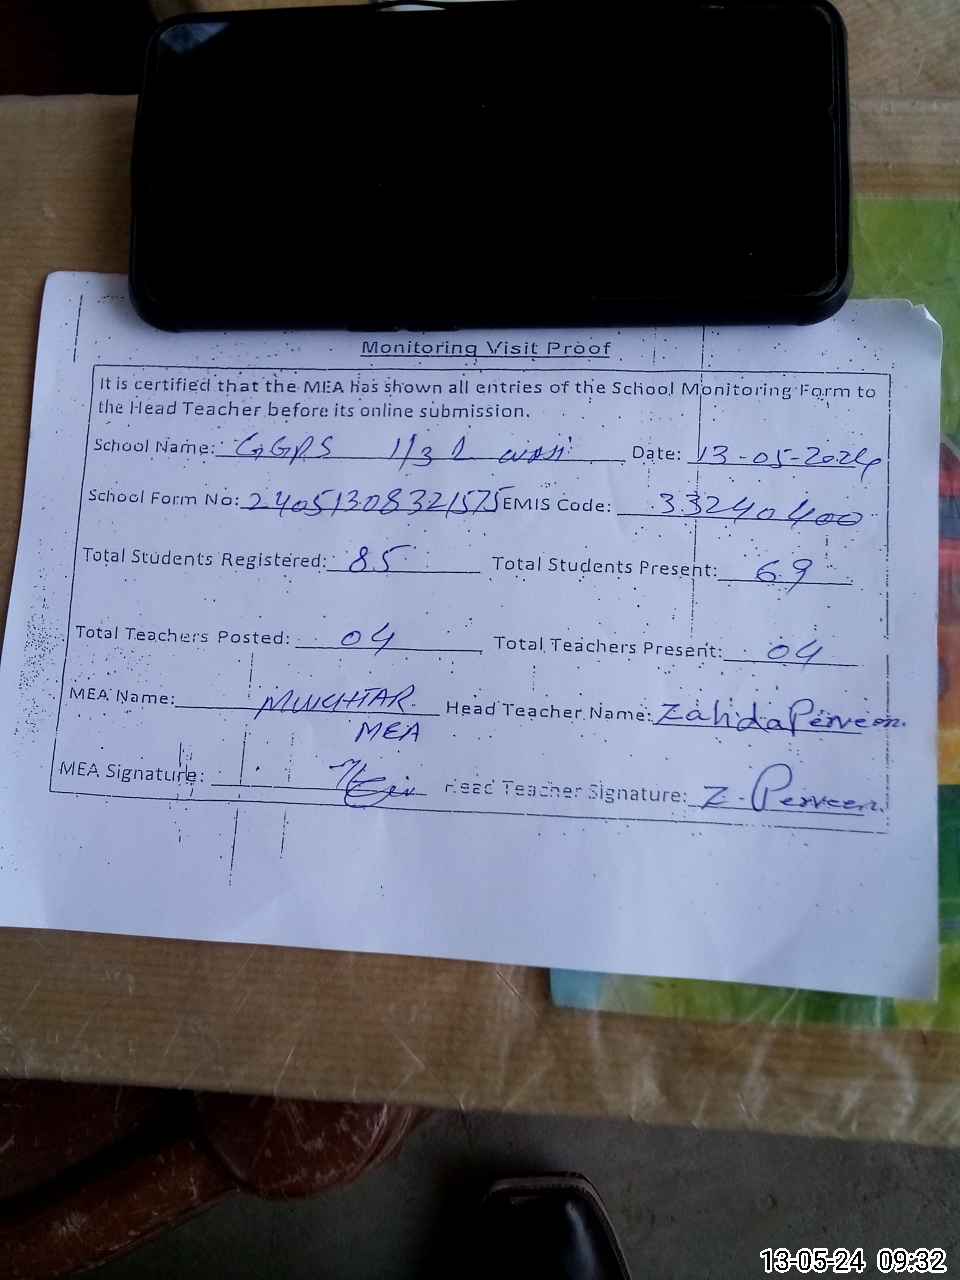 Monitoring Visit Proof
It is certified that the MEA has shown all entries of the School Monitoring Form to
the Head Teacher before its online submission.
School Name: GGPS 1/3 L Date: 13-05-2024
School Form No: 24051308321575 EMIS Code: 33240400
Total Students Registered: 85 Total Students Present: 69
Total Teachers Posted: 04 Total Teachers Present: 04
MEA Name: MUKHTAR Head Teacher Name: Zahida Perveen.
MEA
MEA Signature: Head Teacher Signature: Z. Perveen.
13-05-24 09:32